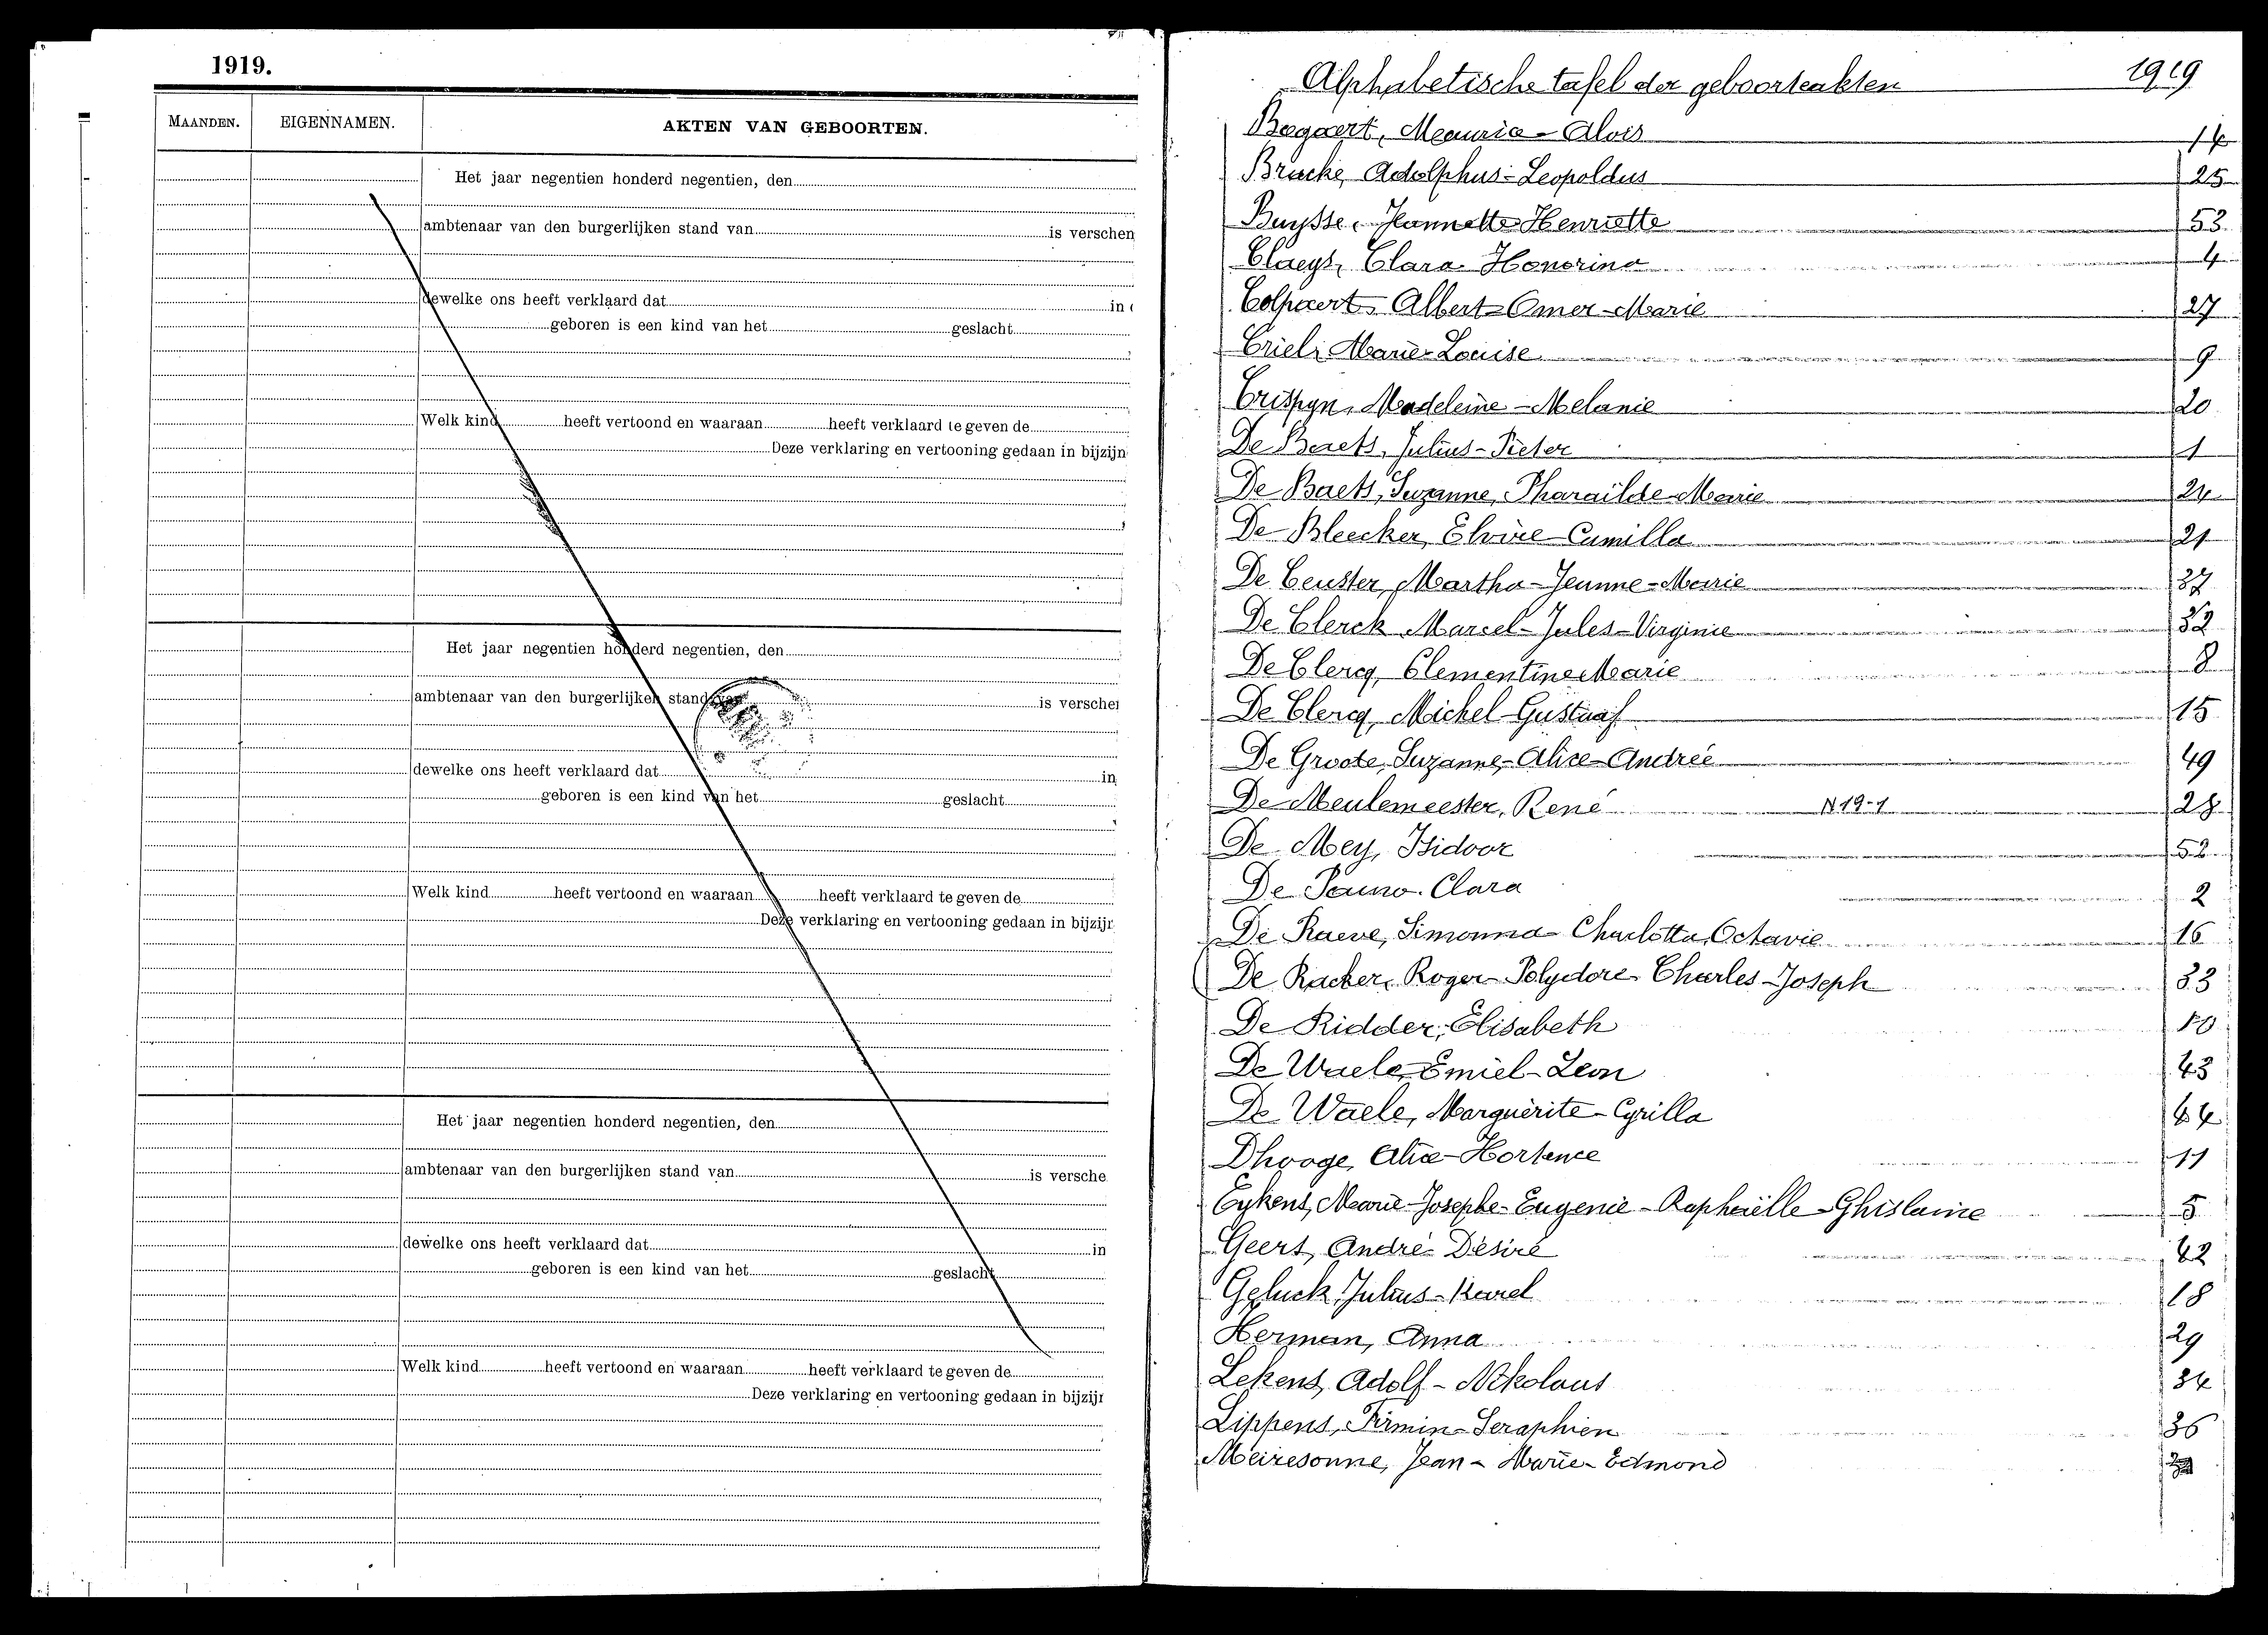 1919.
MAANDEN. EIGENNAMEN. AKTEN VAN GEBOORTEN.
Het jaar negentien honderd negentien, den
ambtenaar van den burgerlijken stand van is verschen
dewelke ons heeft verklaard dat in
geboren is een kind van het geslacht
Welk kind heeft vertoond en waaraan heeft verklaard te geven de
Deze verklaring en vertooning gedaan in bijzijn
Het jaar negentien honderd negentien, den
ambtenaar van den burgerlijken stand van is verschen
dewelke ons heeft verklaard dat in
geboren is een kind van het geslacht
Welk kind heeft vertoond en waaraan heeft verklaard te geven de
Deze verklaring en vertooning gedaan in bijzijn
Het jaar negentien honderd negentien, den
ambtenaar van den burgerlijken stand van is versche
dewelke ons heeft verklaard dat in
geboren is een kind van het geslacht
Welk kind heeft vertoond en waaraan heeft verklaard te geven de
Deze verklaring en vertooning gedaan in bijzijn
Alphabetische tafel der geboorteakten 1919
Bogaert, Maurice - Alois 14
Bracke, Adolphus - Leopoldus 25
Buysse, Jeannette Henriette 53
Claeys, Clara Honorina 4
Colpaert, Albert - Omer - Marie 27
Criel, Marie - Louise 9
Crispyn, Madeleine - Melanie 20
De Baets, Julius - Pieter 1
De Baets, Suzanne, Pharaïlde Marie 24
De Bleecker, Elvire - Camilla 21
De Ceuster, Martha - Jeanne - Marie 37
De Clerck Marcel - Jules - Virginie 32
De Clercq, Clementine Marie 8
De Clercq, Michel - Gustaaf 15
De Groote, Suzanne - Alice - Andreé 49
De Meulemeester, René N 19-1 28
De Mey, Isidoor 52
De Pauw Clara 2
De Raeve, Simonna Charlotta, Octavie 16
De Racker, Roger - Polydore Charles - Joseph 33
De Ridder, Elisabeth 10
De Waele, Emiel - Leon 43
De Waele, Marguerite - Cyrilla 44
Dhooge, Alice - Hortence 11
Eykens, Marie - Josephe - Eugenie - Raphaëlle - Ghislaine 5
Geert, André - Désiré 42
Geluck, Julius - Karel 18
Herman, Anna 29
Lekens, Adolf - Nikolaus 34
Lippens, Firmin - Seraphien 36
Meiresonne, Jean - Marie - Edmond